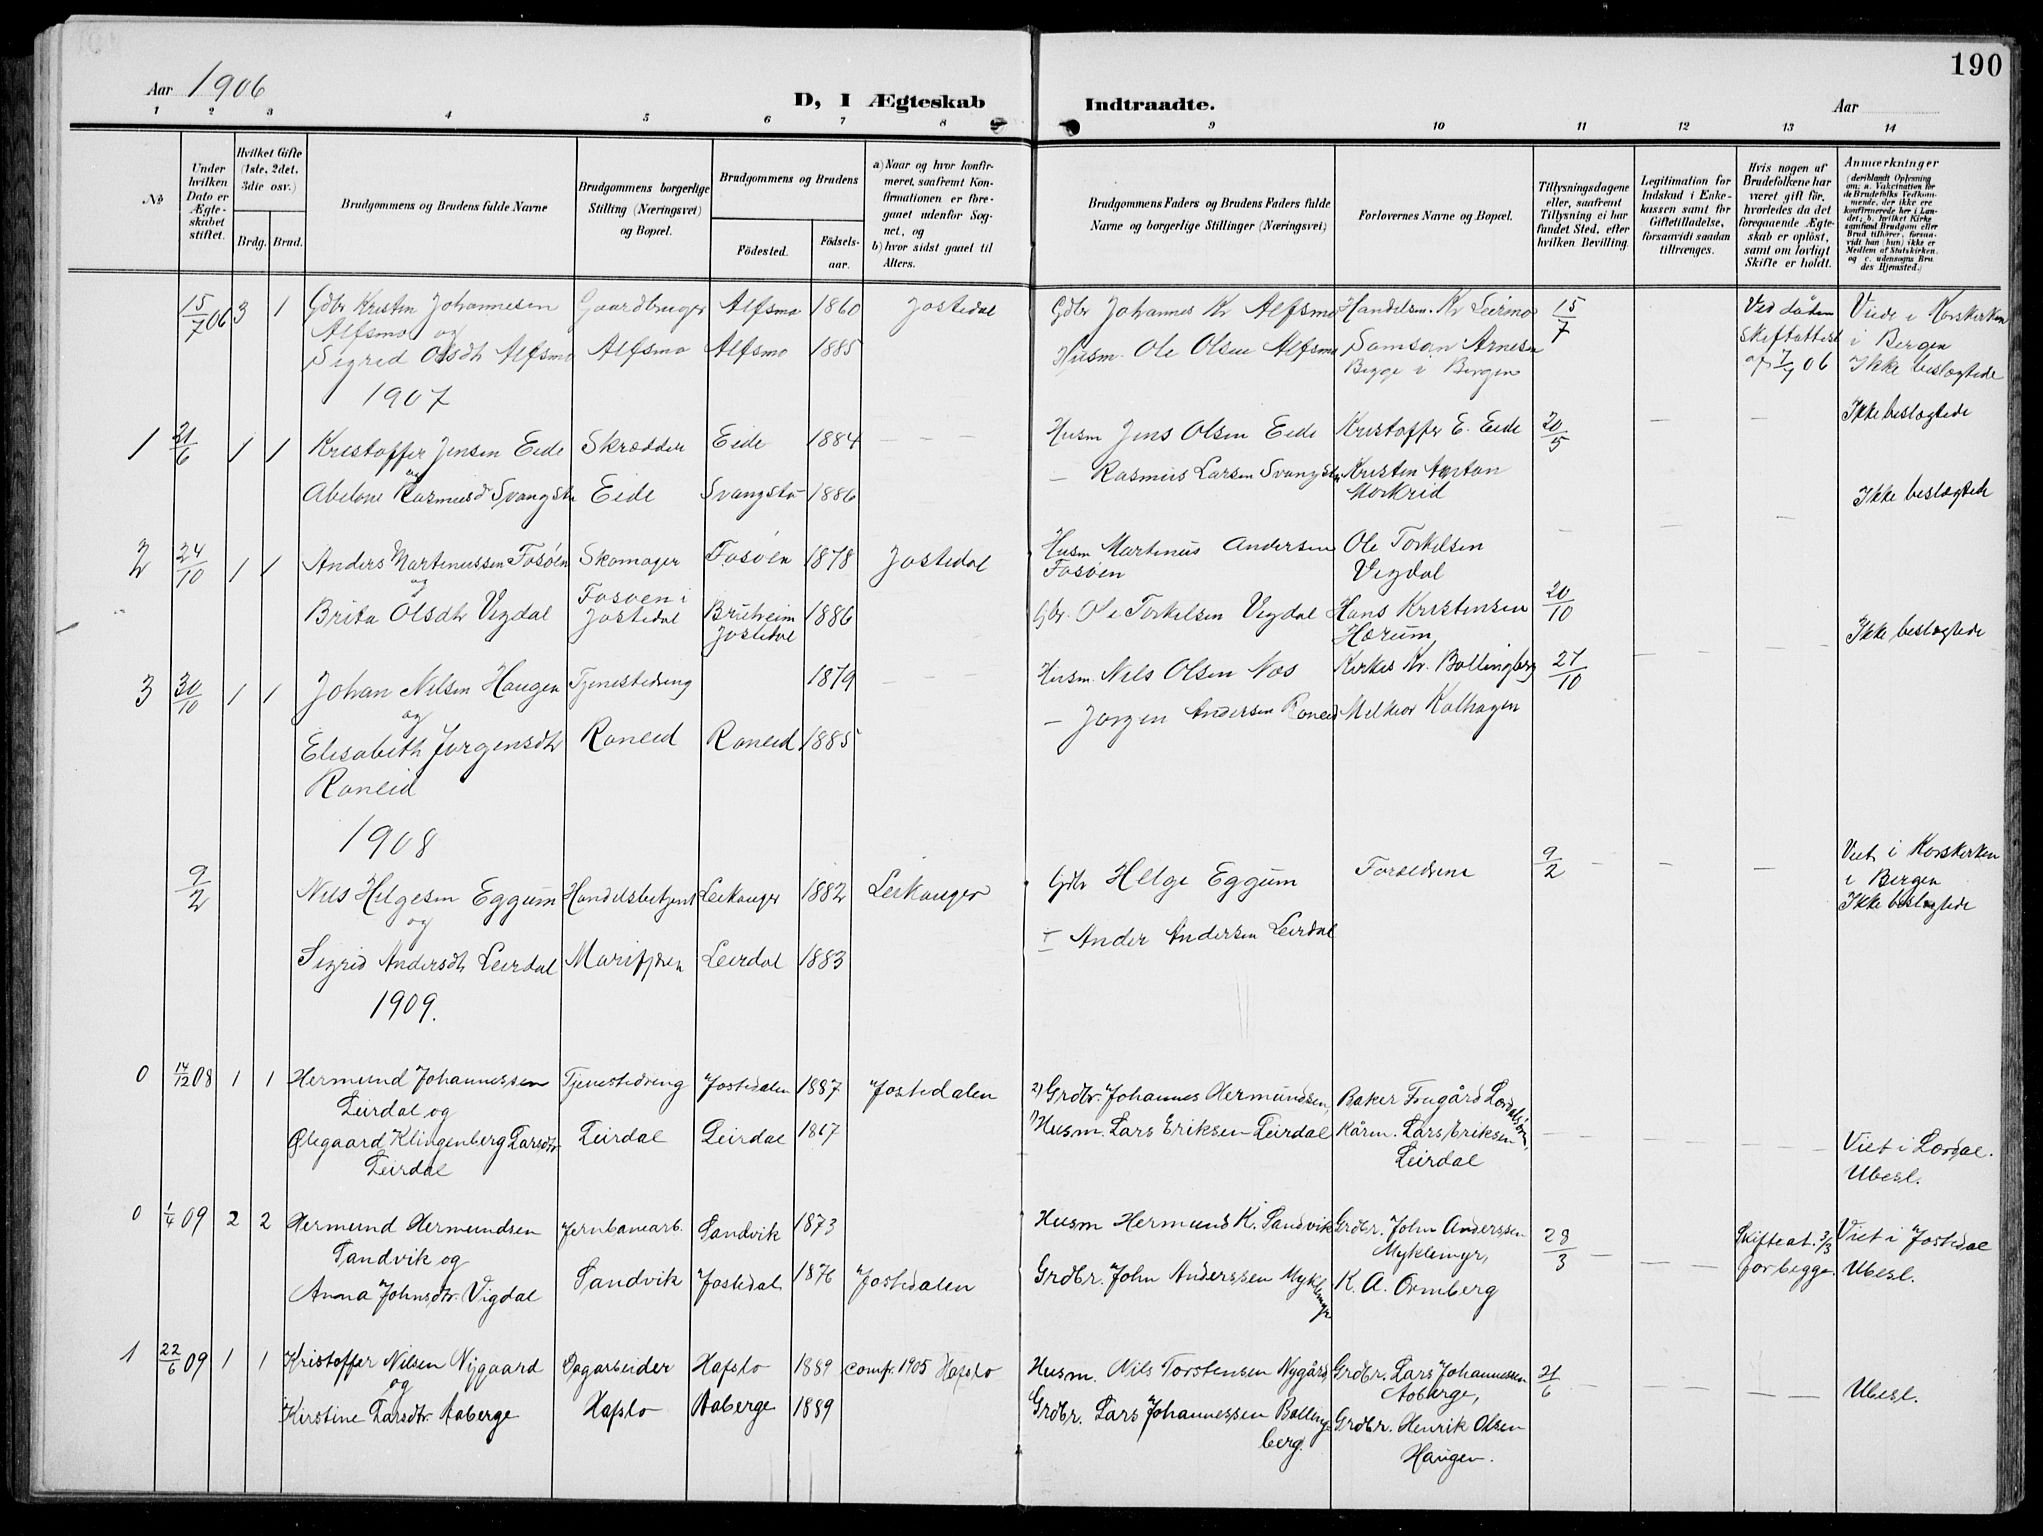 190
Aar 1906
D, I Ægteskab Indtraadte.
Aar
1 2 3 4 5 6 7 8 9 10 11 12 13 14
No
Under hvilken Dato er Ægteskabet stiftet.
Hvilket Gifte (1ste, 2det, 3die osv.)
Brdg. Brud.
Brudgommens og Brudens fulde Navne
Brudgommens borgerlige Stilling (Næringsvei) og Bopæl.
Brudgommens og Brudens
Fødested. Fødselsaar.
a) Naar og hvor konfirmeret, saafremt Konfirmationen er foregaaet udenfor Sognet, og
b) hvor sidst gaaet til Alters.
Brudgommens Faders og Brudens Faders fulde Navne og borgerlige Stillinger (Næringsvei)
Forlovernes Navne og Bopæl.
Tillysningsdagene eller, saafremt Tillysning ei har fundet Sted, efter hvilken Bevilling.
Legitimation for Indskud i Enkekassen samt for Giftetilladelse, forsaavidt saadan tiltrænges.
Hvis nogen af Brudefolkene har været gift før, hvorledes da det foregaaende Ægteskab er opløst, samt om lovligt Skifte er holdt.
Anmærkninger (deriblandt Oplysning om: a. Vakcination for de Brudefolks Vedkommende, der ikke ere konfirmerede her i Landet; b. hvilket Kirkesamfund Brudgom eller Brud tilhører, forsaavidt han (hun) ikke er Medlem af Statskirken, og c. udensogns Brudes Hjemsted.)
15/7 06 3 1 Gdbr Kristen Johannesen Gaardbruger Alfsmo 1860 Jostedal Gdbr Johannes Kr Alfsmo Handelsm. Kr Leirmo 15/7 Ved Døden Viede i Korskirken
Alfsmo og
Sigrid Olsdtr Alfsmo Alfsmo Alfsmo 1885 Husm. Ole Olsen Alfsmo Samson Arnesen Skiftattest i Bergen
Begge i Bergen af 7/7 06 Ikke beslegtede
1907
1 21/6 1 1 Kristoffer Jensen Eide Skrædder Eide 1884 — — — Husm Jens Olsen Eide Kristoffer E. Eide 20/5 — — Ikke beslegtede
og
Abelone Rasmusd Svangstu Eide Svangstu 1886 — Rasmus Larsen Svangstu Kristen Anton
Morkrid
Ikke beslegtede
2 24/10 1 1 Anders Martinussen Fosøen Skomager Fosøen 1878 Jostedal Husm Martinus Andersen Ole Torkelsen —
og Fosøen i Fosøen Vigdal
Brita Olsdtr Vigdal Jostedal Bruheim 1886 Gbr. Ole Torkelsen Vigdal Hans Kristensen 20/10
Jostedal Hærum
Ikke beslegtede
3 30/10 1 1 Johan Nilsen Haugen Tjenestedreng 1879 — — — Husm. Nils Olsen Nos Kirkes. Kr. Bollingberg 27/10 — — —
og
Elisabeth Jørgensdtr Roneid Roneid 1885 — Jørgen Andersen Roneid Melkior Kalhagen
Roneid
1908
9/2 Nils Helgesen Eggum Handelsbetjent Leikanger 1882 Leikanger Gdbr Helge Eggum Forsedrene 9/2 — — — Viet i Korskirken
og i Bergen
Ikke beslegtede
Sigrid Andersdtr Leirdal Marifjøren Leirdal 1883 Ander Andersen Leirdal
1909.
0 14/12 08 1 1 Hermund Johannessen Tjenestedreng Jostedalen 1887 Jostedalen 2) Grdbr. Johannes Hermundsen, Baker Frugård Lærdalsøren,
Leirdal og
Ølegaard Klingenberg Larsdtr. Leirdal Leirdal 1867 1) Husm. Lars Eriksen Leirdal Kårm. Lars Eriksen — — — — Viet i Lærdal.
Leirdal Leirdal Ubesl.
0 1/4 09 2 2 Hermund Hermundsen Jernbanearb. Sandvik 1873 Husm Hermund K. Sandvik Grdbr. John Anderssen 28/3 — — — Skifteat. 3/3 Viet i Jostedal
Sandvik og Myklemyr,
Anna Johnsdtr. Vigdal Sandvik Jostedal 1876 Jostedalen Grdbr. John Anderssen Myklemyr K. A. Ormberg for begge. Ubesl.
1 22/6 09 1 1 Kristoffer Nilsen Nygaard Dagarbeider Hafslo 1889 Comf. 1905 Hafslo Husm. Nils Torstensen Nygård Grdbr. Lars Johannessen 21/6 — — — — Ubesl.
og Aaberge,
Kirstine Larsdtr. Aaberge Hafslo Aaberge 1889 Grdbr. Lars Johannessen Bollingberg. Grdbr. Henrik Olsen
Haugen.